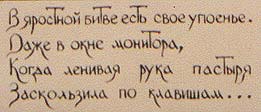 В яростной битве есть свое упоенье.
Даже в окне монитора,
Когда ленивая рука пастыря
Заскользила по клавишам...